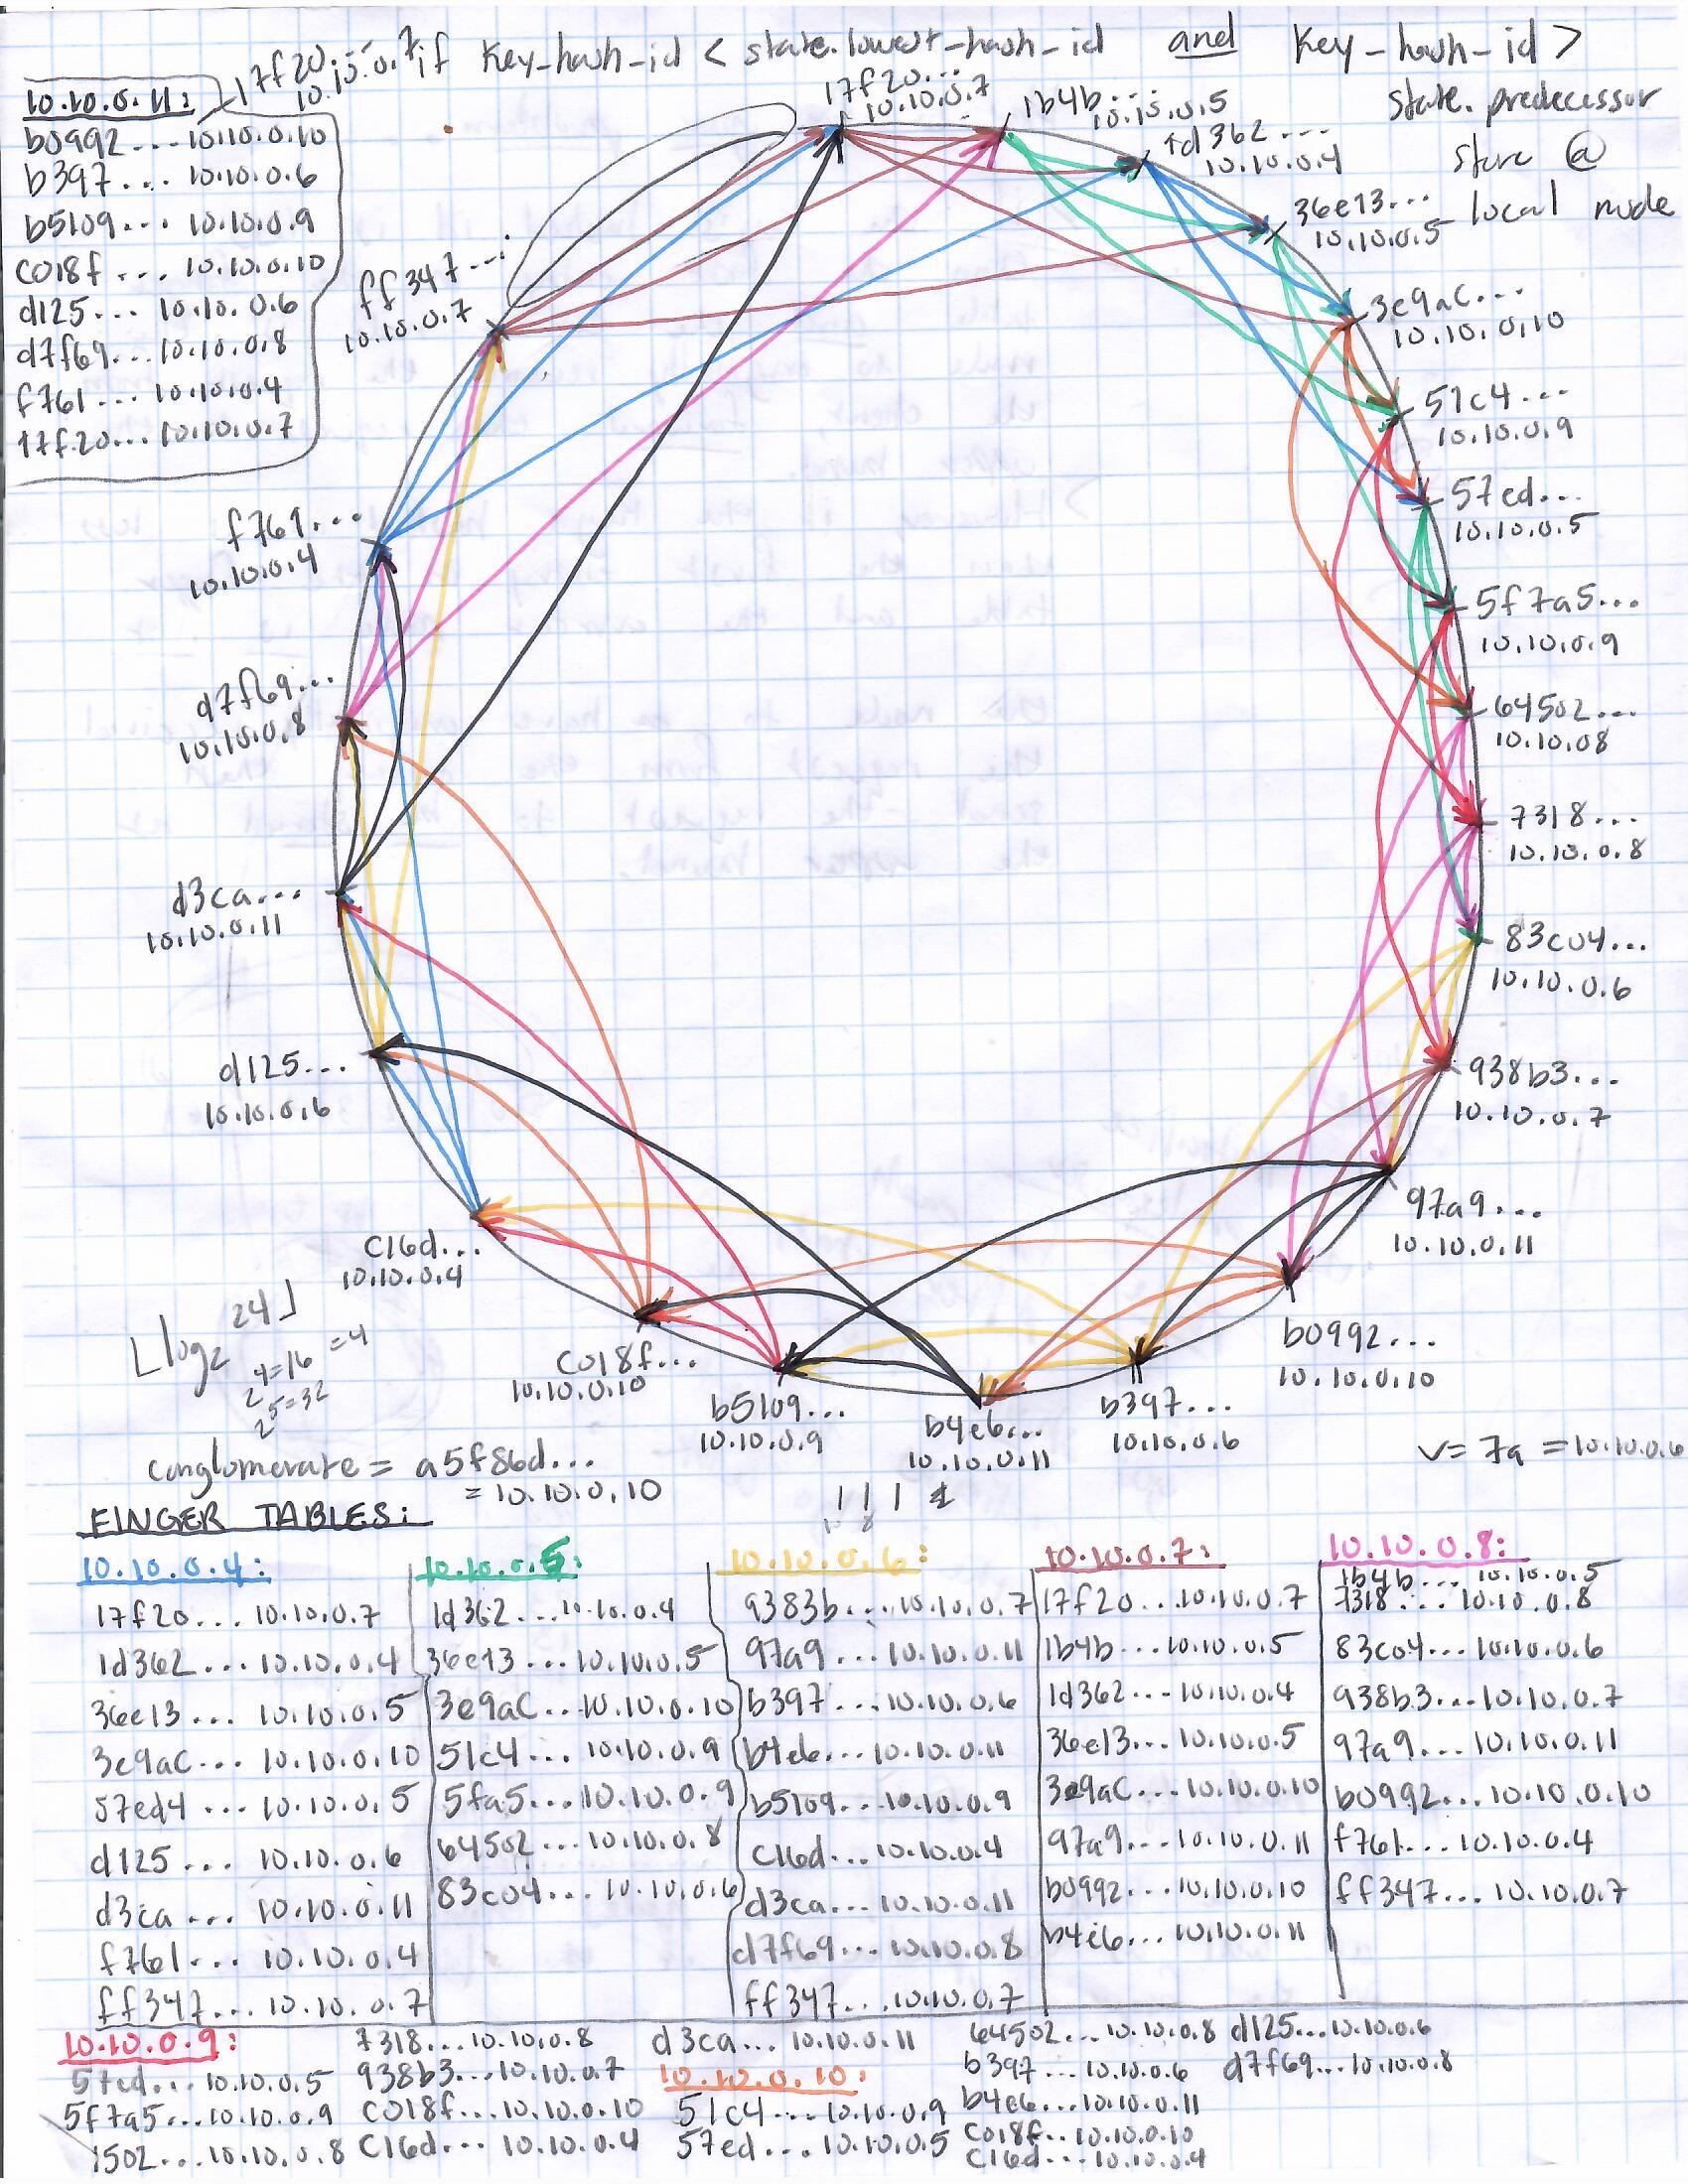 if key_hash_id < state.lowest_hash_id and key_hash_id >
state.predecessor
store @
local node
17f20...
10.10.0.7
10.10.0.11:
b0992...10.10.0.10
b397... 10.10.0.6
b5109... 10.10.0.9
c018f... 10.10.0.10
d125... 10.10.0.6
d7f69...10.10.0.8
f761... 10.10.0.4
17f20...10.10.0.7
17f20...
10.10.0.7
1b4b...
10.10.0.5
1d362...
10.10.0.4
36e13...
10.10.0.5
3e9ac...
10.10.0.10
51c4...
10.10.0.9
57ed...
10.10.0.5
5f7a5...
10.10.0.9
64502...
10.10.08
7318...
10.10.0.8
83c04...
10.10.0.6
938b3...
10.10.0.7
97a9...
10.10.0.11
b0992...
10.10.0.10
b397...
10.10.0.6
b4e6...
10.10.0.11
b5109...
10.10.0.9
c018f...
10.10.0.10
c16d...
10.10.0.4
d125...
10.10.0.6
d3ca...
10.10.0.11
d7f69...
10.10.0.8
f761...
10.10.0.4
ff347...
10.10.0.7
⌊log2 24⌋
2^4=16 =4
2^5=32
conglomerate = a5f86d...
= 10.10.0.10
v= 7a =10.10.0.6
FINGER TABLES:
10.10.0.4:
17f20... 10.10.0.7
1d362... 10.10.0.4
36e13... 10.10.0.5
3e9ac... 10.10.0.10
57ed4... 10.10.0.5
d125... 10.10.0.6
d3ca... 10.10.0.11
f761... 10.10.0.4
ff347... 10.10.0.7
10.10.0.5:
1d362...10.10.0.4
36e13...10.10.0.5
3e9ac...10.10.0.10
51c4... 10.10.0.9
5fa5...10.10.0.9
64502...10.10.0.8
83c04... 10.10.0.6
10.10.0.6:
9383b...10.10.0.7
97a9...10.10.0.11
b397...10.10.0.6
b4e6...10.10.0.11
b5109...10.10.0.9
c16d...10.10.0.4
d3ca...10.10.0.11
d7f69...10.10.0.8
ff347...10.10.0.7
10.10.0.7:
17f20...10.10.0.7
1b4b...10.10.0.5
1d362...10.10.0.4
36e13...10.10.0.5
3e9ac...10.10.0.10
97a9...10.10.0.11
b0992...10.10.0.10
b4e6...10.10.0.11
10.10.0.8:
1b4b... 10.10.0.5
7318... 10.10.0.8
83c04... 10.10.0.6
938b3...10.10.0.7
97a9... 10.10.0.11
b0992...10.10.0.10
f761...10.10.0.4
ff347...10.10.0.7
10.10.0.9:
57ed...10.10.0.5
5f7a5...10.10.0.9
4502...10.10.0.8
7318...10.10.0.8
938b3...10.10.0.7
c018f...10.10.0.10
c16d... 10.10.0.4
d3ca... 10.10.0.11
10.10.0.10:
51c4...10.10.0.9
57ed...10.10.0.5
64502...10.10.0.8
b397...10.10.0.6
b4e6...10.10.0.11
c018f...10.10.0.10
c16d...10.10.0.4
d125...10.10.0.6
d7f69...10.10.0.8